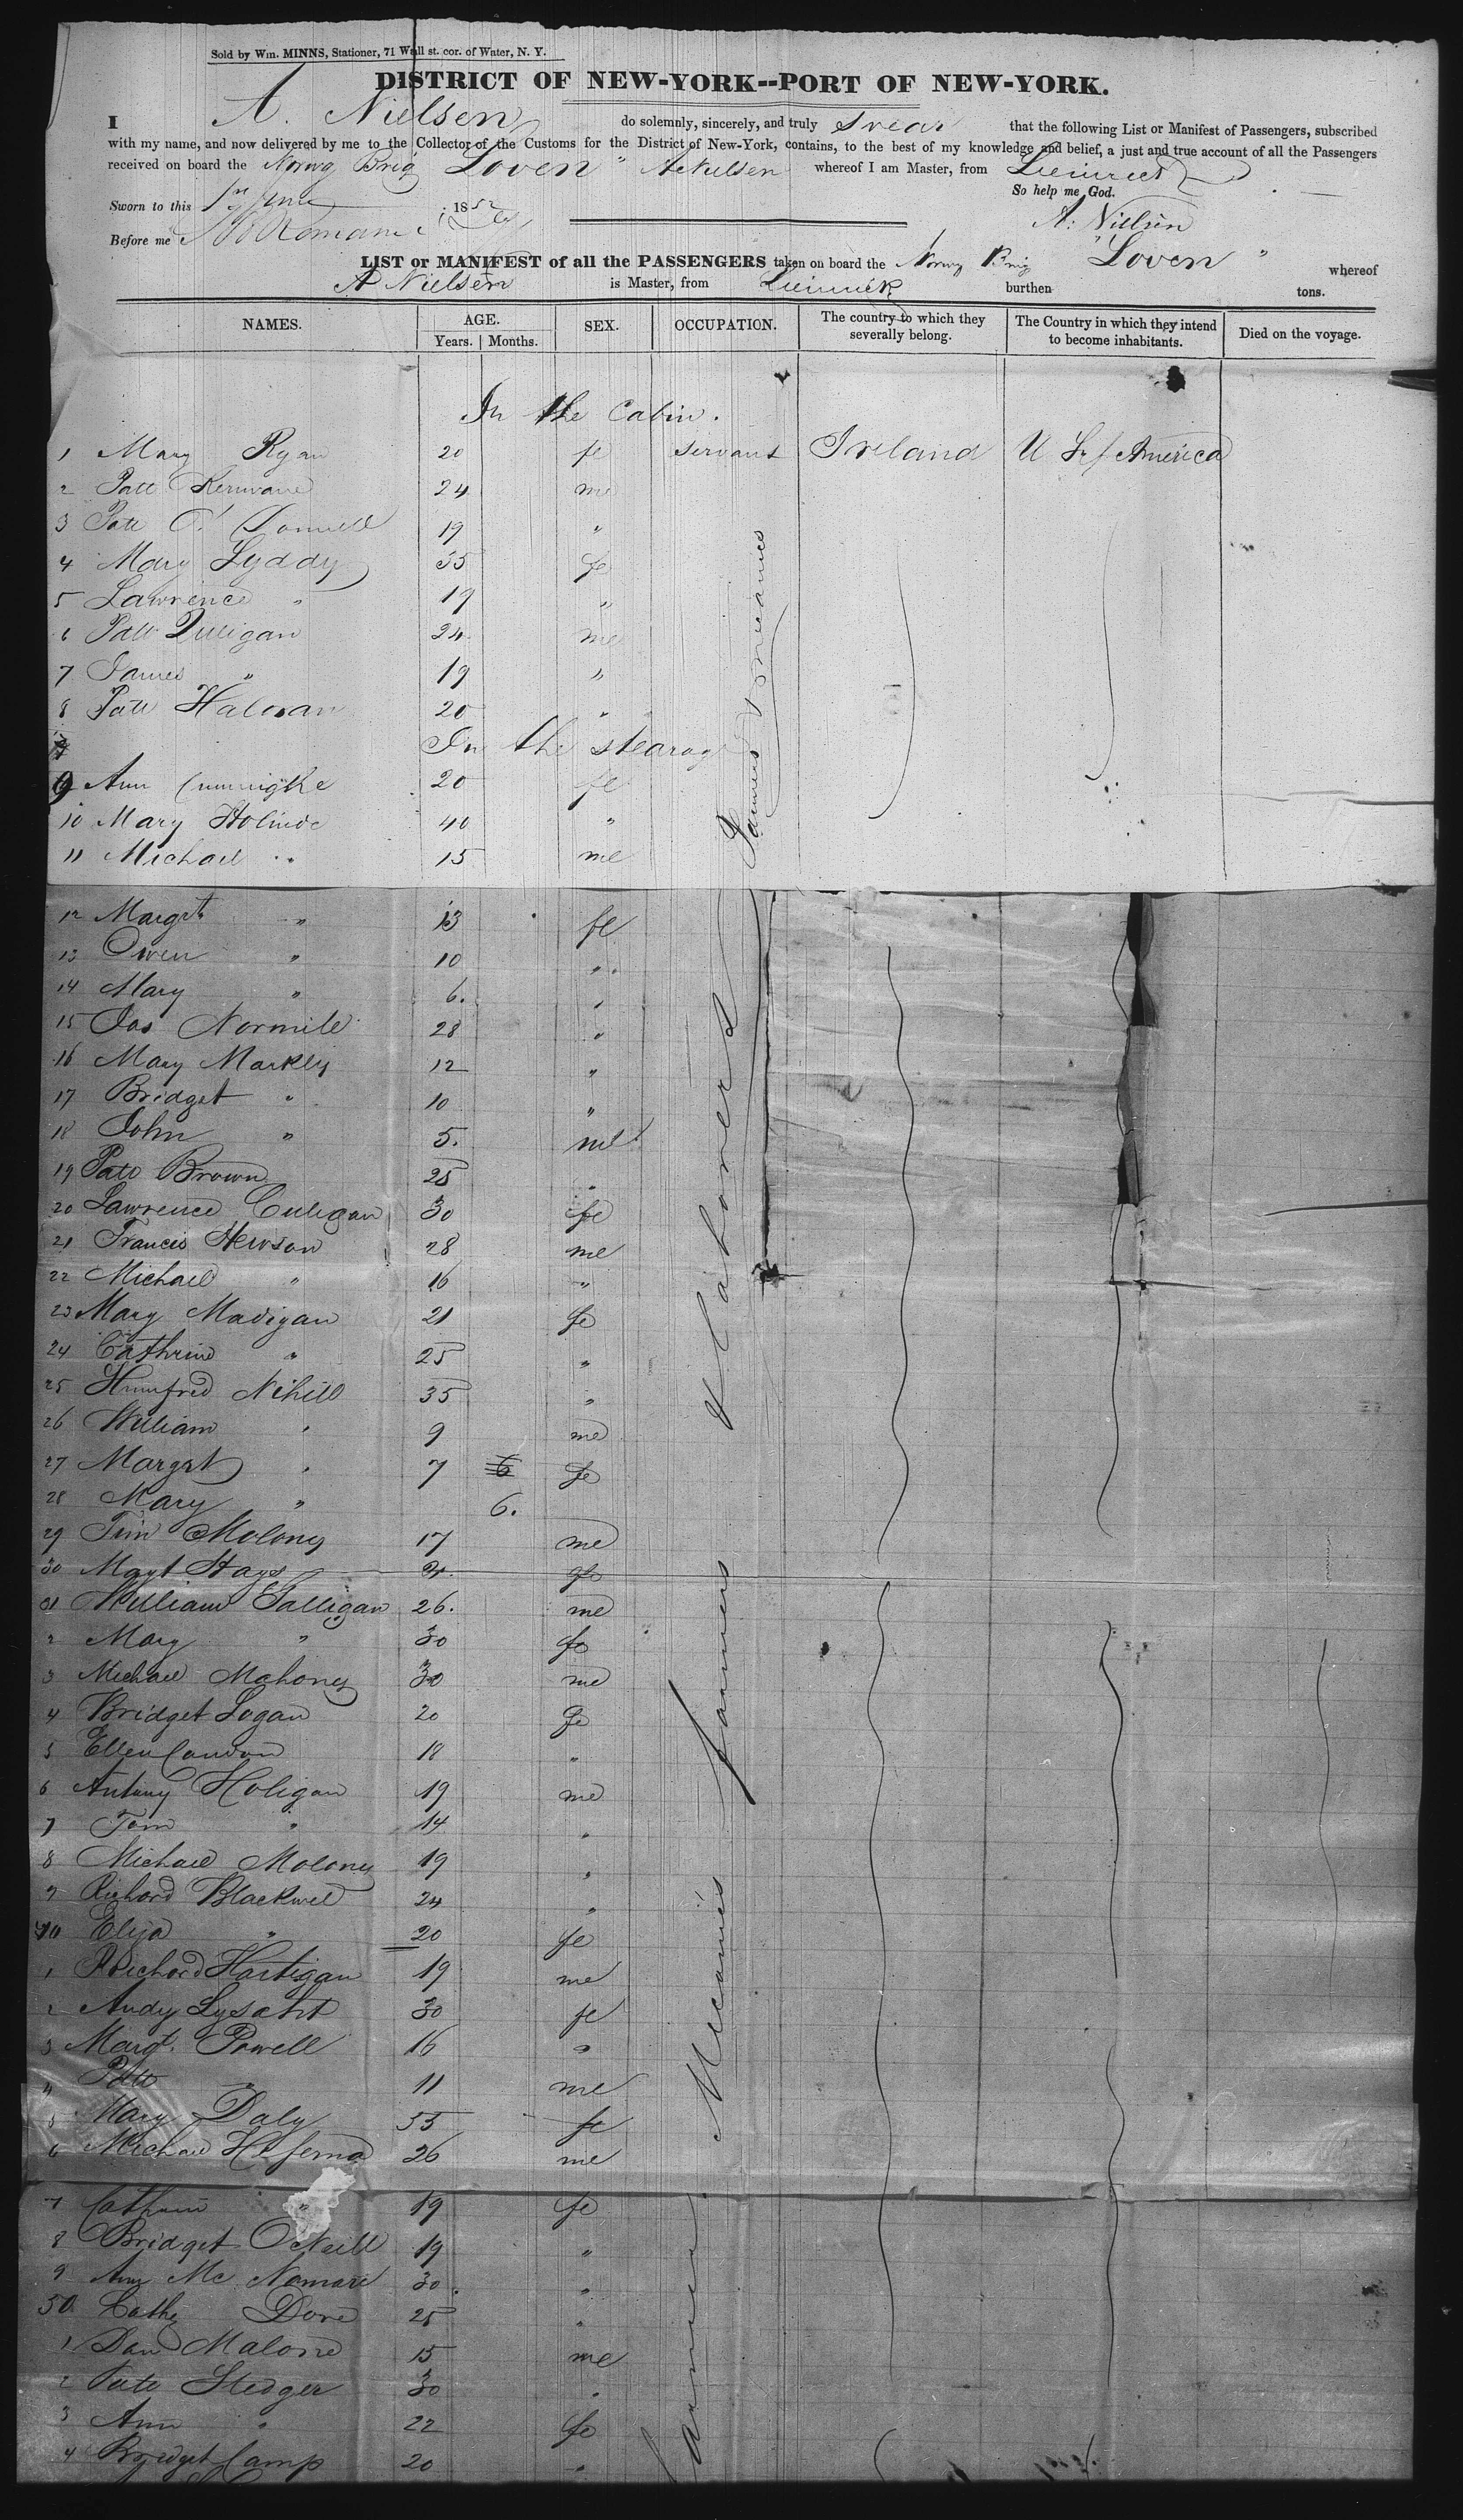 Sold by Wm. MINNS, Stationer, 71 Wall st. cor. of Water, N. Y.
DISTRICT OF NEW-YORK--PORT OF NEW-YORK.
I A. Nielsen do solemnly, sincerely, and truly Swear that the following List or Manifest of Passengers, subscribed
with my name, and now delivered by me to the Collector of the Customs for the District of New-York, contains, to the best of my knowledge and belief, a just and true account of all the Passengers
received on board the Norwg Brig Loven " A Nielsen whereof I am Master, from
So help me God.
Sworn to this June 1852
A: Nielsen
Before me
LIST or MANIFEST of all the PASSENGERS taken on board the Norwg Brig "Loven" whereof
A Nielsen is Master, from Limrick burthen tons.
NAMES. AGE. SEX. OCCUPATION. The country to which they severally belong. The Country in which they intend to become inhabitants. Died on the voyage.
Years. Months.
In the Cabin.
1 Mary Ryan 20 fe servant Ireland U S of America
2 Patt Kerwane 24 me
3 Patt O' Donnell 19 "
4 Mary Lyddy 35 fe
5 Lawrence " 19 "
6 Patt Quligan 24 me
7 James " 19 "
8 Patt Haloran 20 "
In the stearage
9 Ann 20 fe
10 Mary 40 "
11 Michael " 15 me
12 Margrt " 13 fe
13 Owen " 10 "
14 Mary " 6. "
15 Jas Normile 28 "
16 Mary Markley 12 "
17 Bridget " 10 "
18 John " 5. me
19 Patt Brown 25 "
20 Lawrence Culigan 30 fe
21 Francis Hewson 28 me
22 Michael " 16 "
23 Mary Madigan 21 fe
24 Cathrine " 25 "
25 Hunifred Nihill 35 "
26 William " 9 me
27 Margrt " 7 6 fe
28 Mary " 6.
29 Tim Molony 17 me
30 Magt Hays fe
31 William Galligan 26. me
2 Mary " 30 fe
3 Michael Mahony 30 me
4 Bridget Logan 20 fe
5 Ellen Condon 18 "
6 Antony Holigan 19 me
7 Tom " 14 "
8 Michael Molony 19 "
9 Richard Blackwel 24 "
40 Eliza " 20 fe
1 Richard Hartigan 19 me
2 Andy Lysaht 30 fe
3 Margt. Powell 16 "
4 Patt " 11 me
5 Mary Daly 55 fe
6 Michael 26 me
7 Cathrin " 19 fe
8 Bridget O Neill 19 "
9 Ann Mc Namare 30. "
50 Cathy Dore 25 "
1 Dan Malone 15 me
2 Patt Sledger 30 "
3 Ann " 22 fe
4 Bridget Camp 20 "
Farmers & Mecanies
& Labourers
Farmers
Mecanies
Farmers